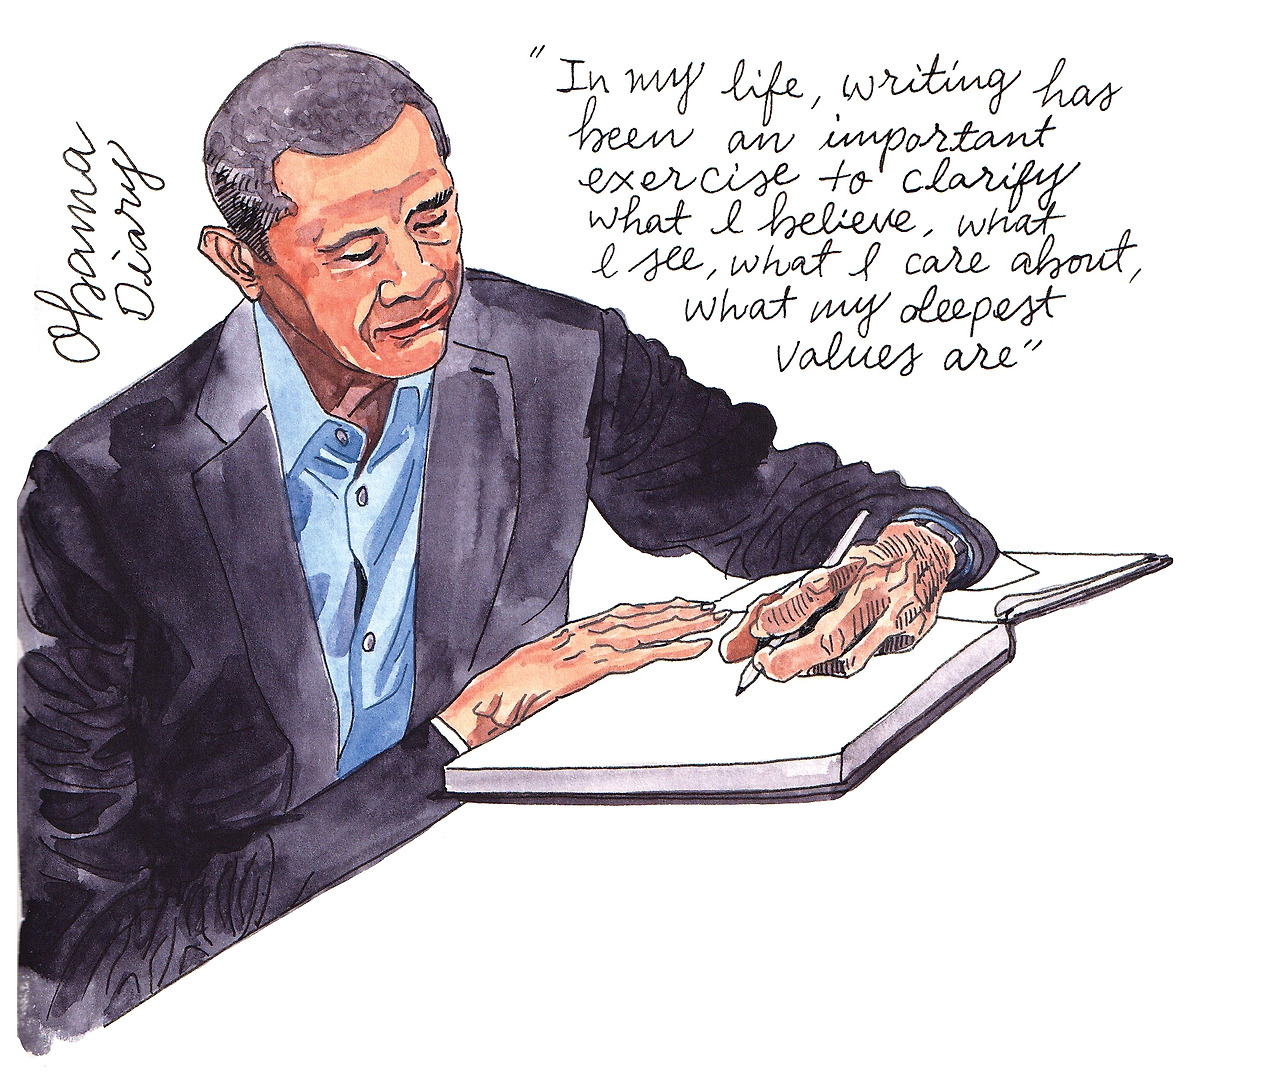 Obama
Diary
"In my life, writing has
been an important
exercise to clarify
what I believe, what
I see, what I care about,
what my deepest
values are"